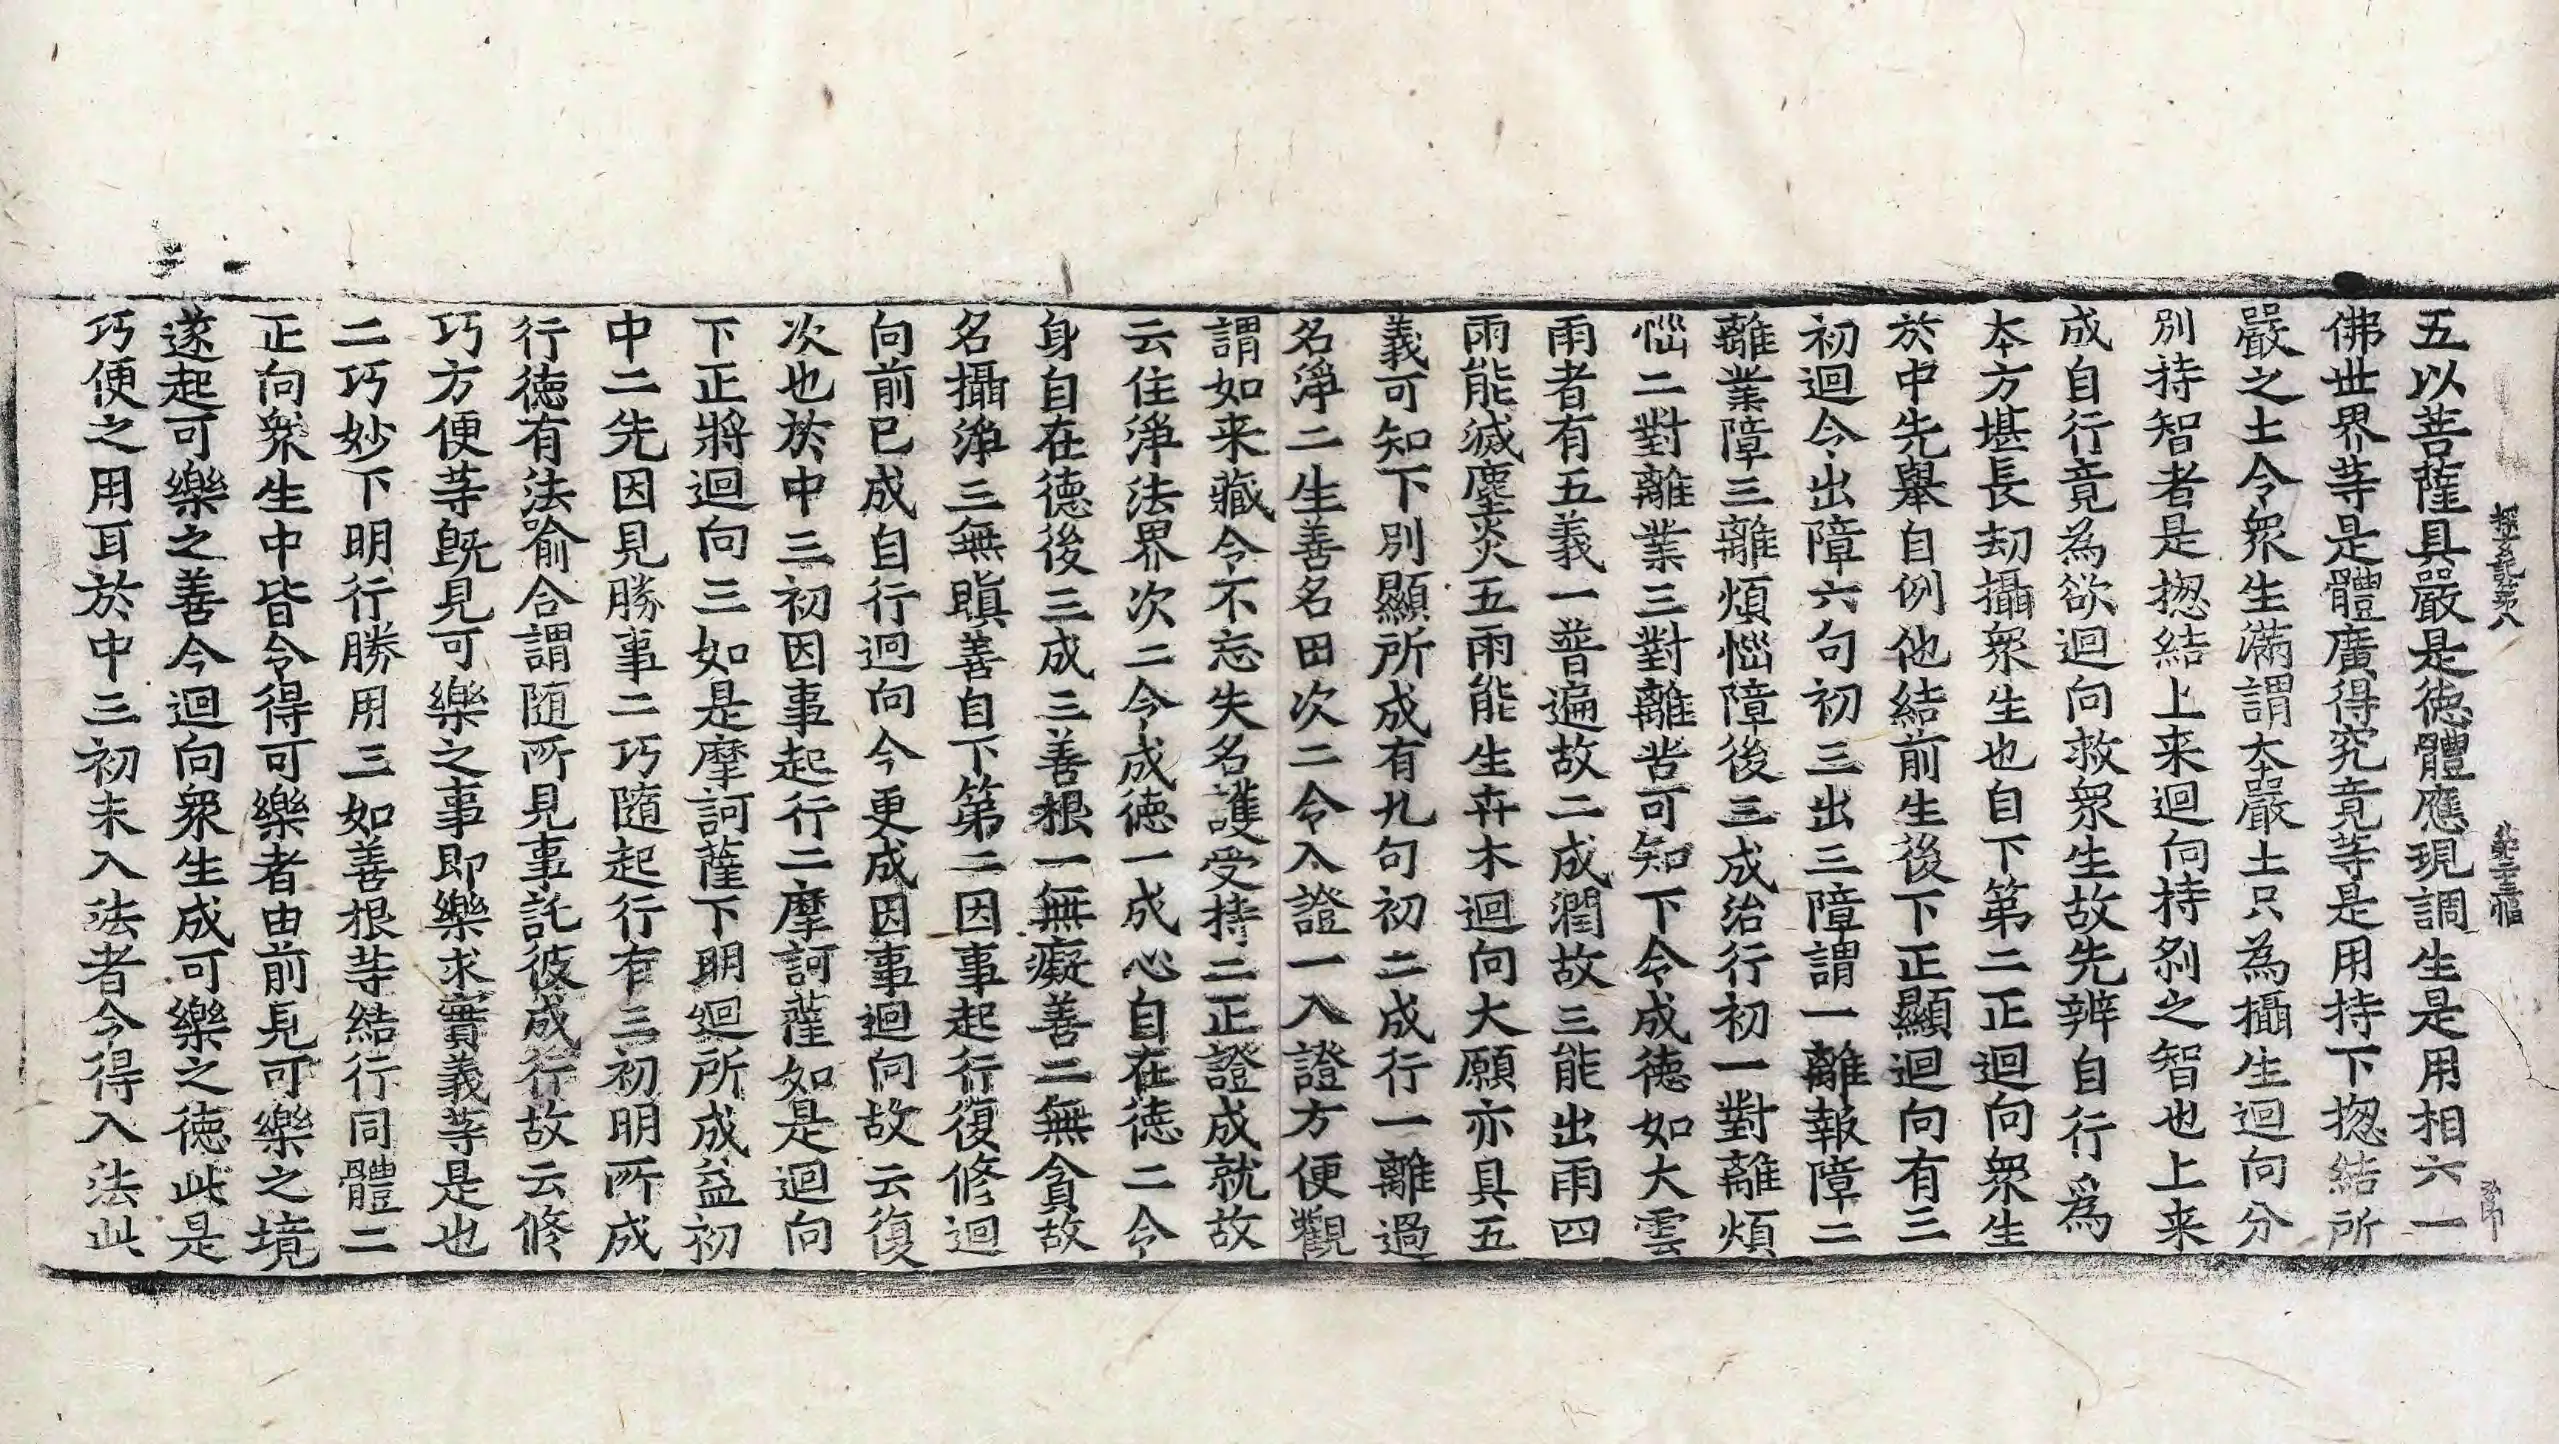 探玄記第八
五以菩薩具嚴是徳體應現調生是用相六一
佛世界等是體廣得究竟等是用持下揔結所
嚴之土令衆生滿謂夲嚴土只為攝生迴向分
別持智者是揔結上来迴向持刹之智也上来
成自行竟為欲迴向救衆生故先辨自行為
夲方堪長劫攝衆生也自下第二正迴向衆生
於中先舉自例他結前生後下正顯迴向有三
初迴令出障六句初三出三障謂一離報障二
離業障三離煩惱障後三成治行初一對離煩
惱二對離業三對離苦可知下令成徳如大雲
雨者有五義一普遍故二成潤故三能出雨四
雨能滅塵炎五雨能生卉木迴向大願亦具五
義可知下別顯所成有九句初二成行一離過
名淨二生善名田次二令入證一入證方便觀
謂如来藏令不忘失名護受持二正證成就故
云住淨法界次二令成徳一成心自在徳二令
身自在徳後三成三善根一無癡善二無貪故
名攝淨三無瞋善自下第二因事起行復修迴
向前已成自行迴向今更成因事迴向故云復
次也於中三初因事起行二摩訶薩如是迴向
下正將迴向三如是摩訶薩下明迴所成益初
中二先因見勝事二巧隨起行有三初明所成
行徳有法喻合謂随所見事託彼成行故云修
巧方便等旣見可樂之事即樂求實義等是也
二巧妙下明行勝用三如善根等結行同體二
正向衆生中皆令得可樂者由前見可樂之境
遂起可樂之善今迴向衆生成可樂之徳此是
巧便之用耳於中三初未入法者令得入法此